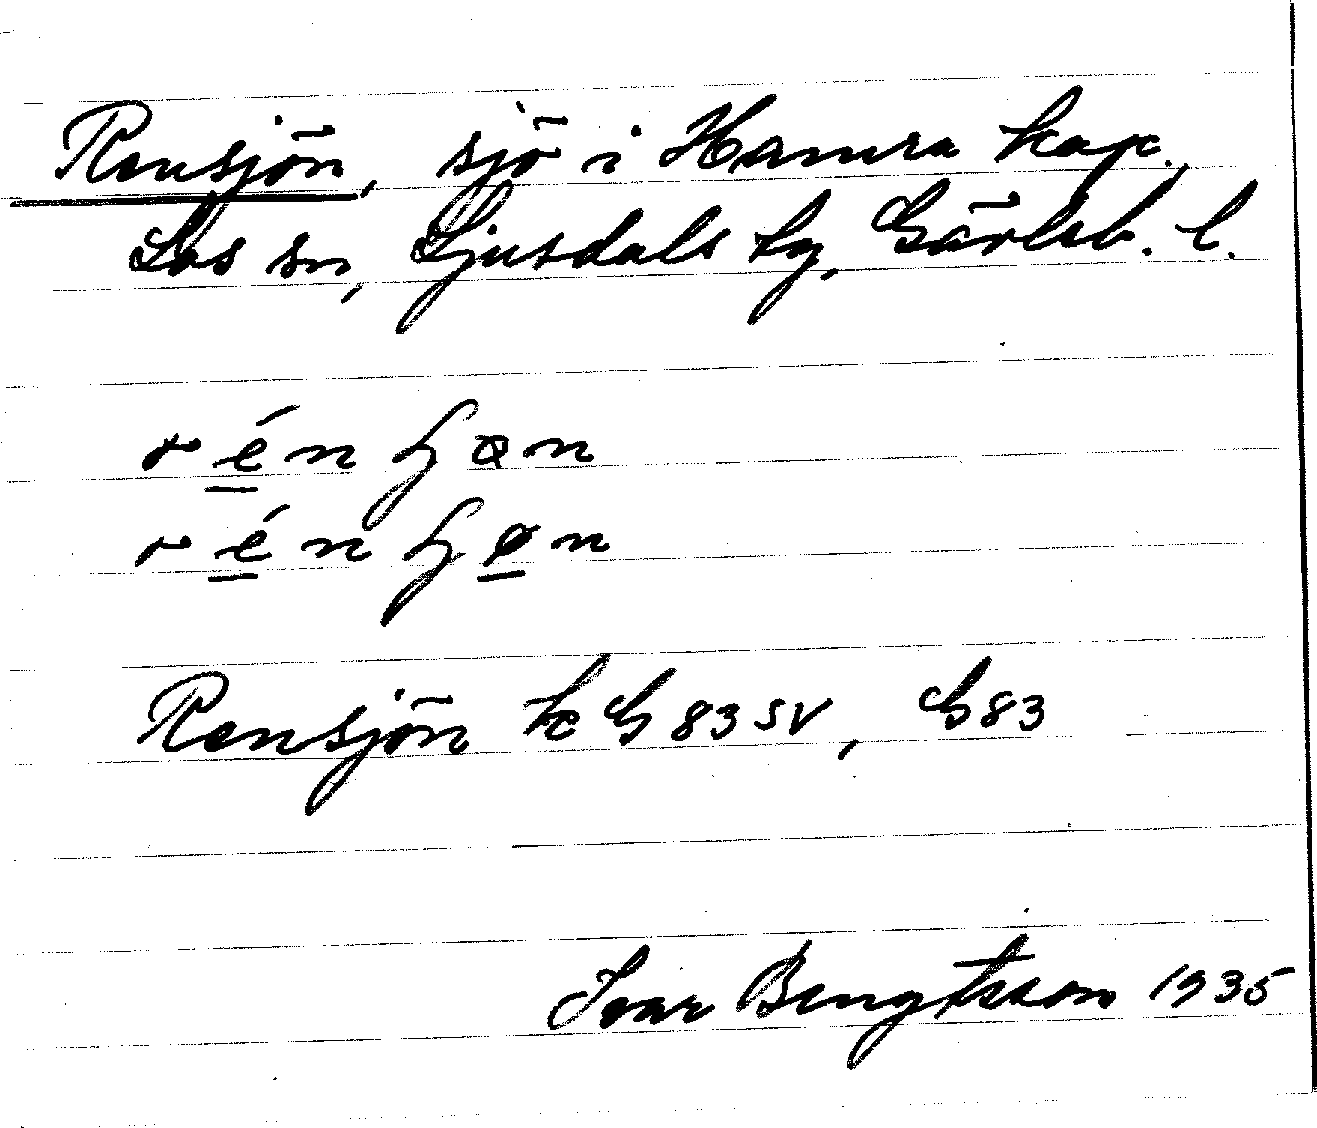 Rensjön, sjö i Hamra kap.,
Los sn, Ljusdals tg, Gävleb. l.
Rensjön kG 83 SV, G 83
Ivar Bengtsson 1935